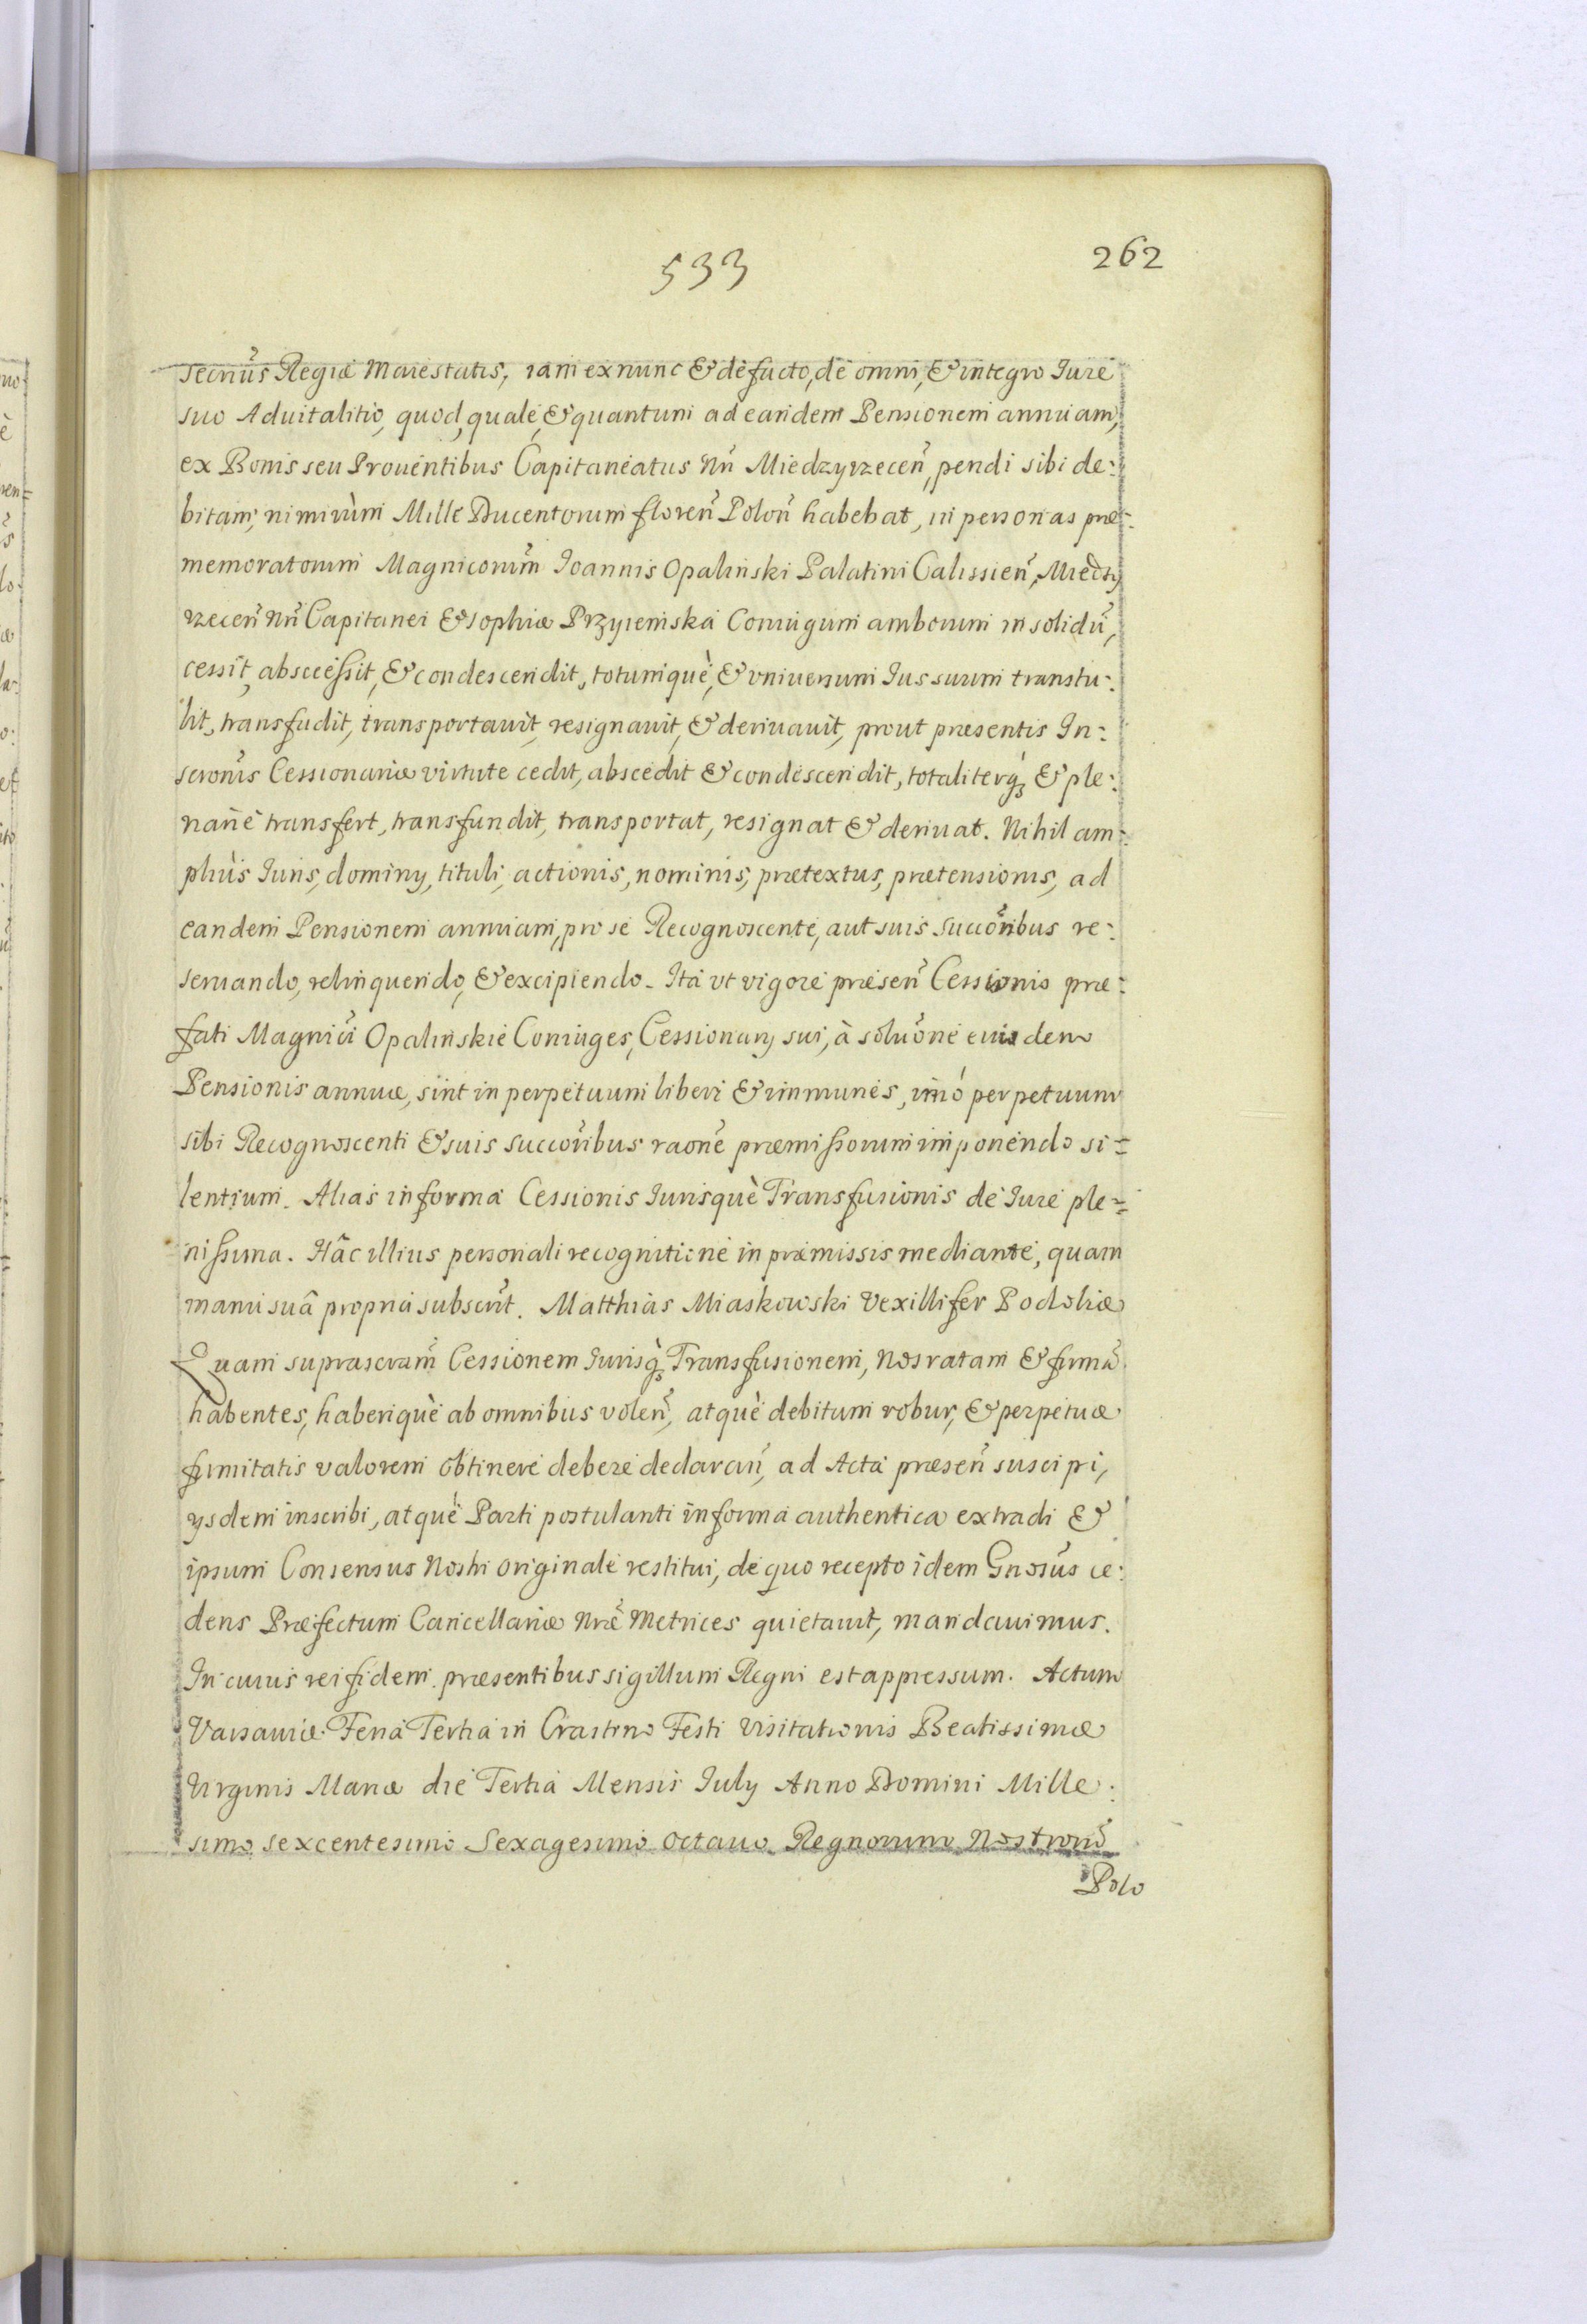 533
262
secrius Regiæ Maiestatis, iam ex nunc & de facto, de omni, & integro Iure
suo Aduitalitio, quod, quale, & quantum ad eandem Pensionem annuam,
ex Bonis seu Prouentibus Capitaneatus Nrî Miedzyrzecen̄, pendi sibi de:
bitam, nimirùm Mille Ducentorum floren̄ Polon̄ habebat, in personas præ:
memoratorum Magnicorum̄ Ioannis Opalinski Palatini Calissien̄, Miedzy
rzecen̄ Nrî Capitanei & Sophiæ Przyiemska Coniugum amborum in solidū,
cessit, abscessit, & condescendit, totumquè, & vniuersum Ius suum transtu:
lit, transfudit, transportauit, resignauit, & deriuauit, prout præsentis In:
scronis Cessionariæ virtute cedit, abscedit & condescendit, totaliterq́ & ple:
narīe transfert, transfundit, transportat, resignat & deriuat. Nihil am:
pliùs Iuris, dominy, tituli, actionis, nominis, prætextus, prætensionis, ad
eandem Pensionem annuam, pro se Recognoscente, aut suis Succōribus re:
seruando, relinquendo, & excipiendo. Ita vt vigore præsen̄ Cessionis præ:
fati Magnici Opalinskie Coniuges, Cessionary sui, à soluōne eiusdem
Pensionis annuæ, sint in perpetuum liberi & immunes, imò perpetuum
sibi Recognoscenti & suis succoribus raōne præmissorum imponendo si=
lentium. Alias in forma Cessionis Iurisquè Transfusionis de Iure ple=
nissima. Hâc illius personali recognitione in præmissis mediante, quam
manu suâ propria subscrit. Matthias Miaskowski Vexillifer Podoliæ
Quam suprascram̄ Cessionem Iurisq̀ Transfusionem, Nos ratam & firmā
habentes, haberiquè ab omnibus volen̄, atquè debitum robur, & perpetuæ
firmitatis valorem obtinere debere declaran̄, ad Acta præsen̄ suscipi,
ysdem inscribi, atquè Parti postulanti in forma authentica extradi &
ipsum Consensus Nostri originale restitui, de quo recepto idem Gnosus ce:
dens Præfectum Cancellariæ Nræ Metrices quietauit, mandauimus.
In cuius rei fidem præsentibus sigillum Regni est appressum. Actum
Varsauiæ Feria Tertia in Crastino Festi Visitationis Beatissimæ
Virginis Mariæ die Tertia Mensis July Anno Domini Mille:
simo sexcentesimo Sexagesimo octauo Regnorum Nostrorū
Polo